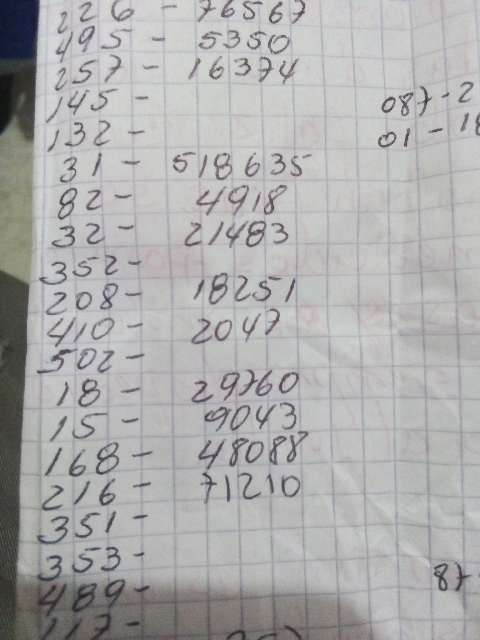 226 - 76567
495 - 5350
257 - 16374
145 -
132 -
31 - 518635
82 - 4918
32 - 21483
352 -
208 - 18251
410 - 2047
502 -
18 - 29760
15 - 9043
168 - 48088
216 - 71210
351 -
353 -
489 -
117 -
087 - 2
01 - 18
87 -